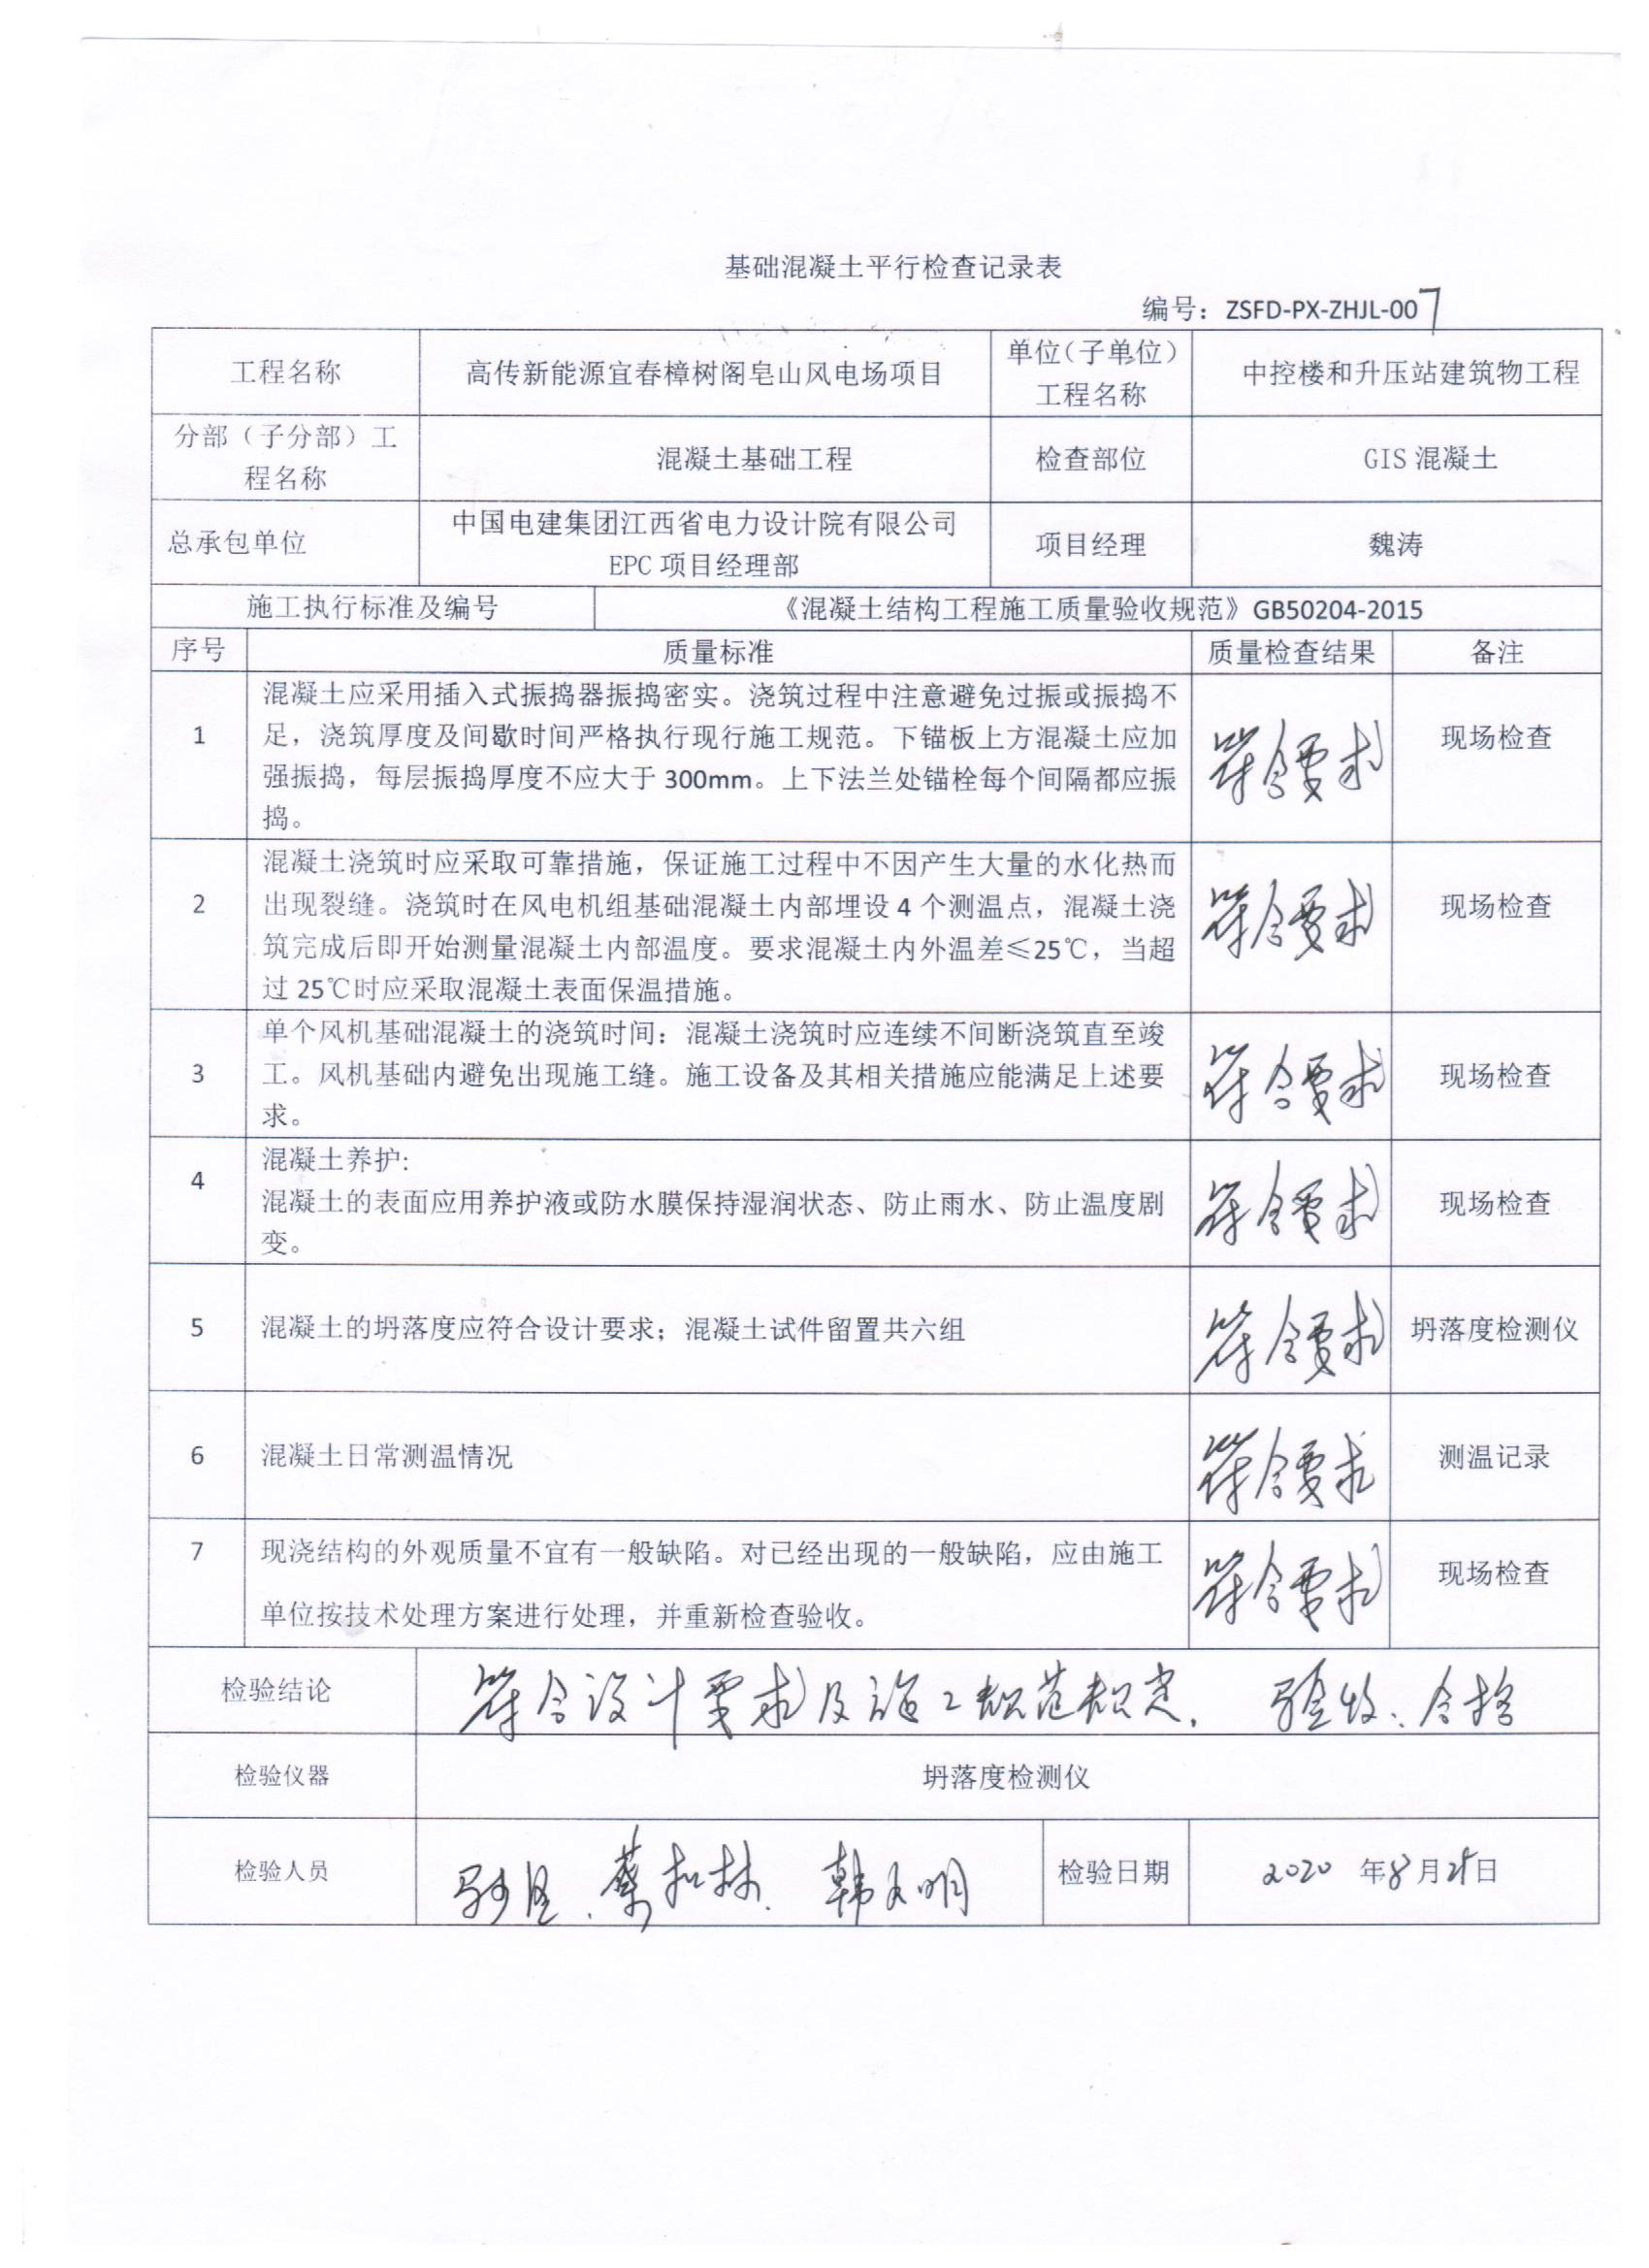 基础混凝土平行检查记录表
编号：ZSFD-PX-ZHJL-007
工程名称 高传新能源宜春樟树阁皂山风电场项目 单位（子单位）工程名称 中控楼和升压站建筑物工程
分部（子分部）工程名称 混凝土基础工程 检查部位 GIS 混凝土
总承包单位 中国电建集团江西省电力设计院有限公司
EPC 项目经理部 项目经理 魏涛
施工执行标准及编号 《混凝土结构工程施工质量验收规范》GB50204-2015
序号 质量标准 质量检查结果 备注
1 混凝土应采用插入式振捣器振捣密实。浇筑过程中注意避免过振或振捣不
足，浇筑厚度及间歇时间严格执行现行施工规范。下锚板上方混凝土应加
强振捣，每层振捣厚度不应大于 300mm。上下法兰处锚栓每个间隔都应振
捣。
符合要求 现场检查
2 混凝土浇筑时应采取可靠措施，保证施工过程中不因产生大量的水化热而
出现裂缝。浇筑时在风电机组基础混凝土内部埋设 4 个测温点，混凝土浇
筑完成后即开始测量混凝土内部温度。要求混凝土内外温差≤25℃，当超
过 25℃时应采取混凝土表面保温措施。
符合要求 现场检查
3 单个风机基础混凝土的浇筑时间：混凝土浇筑时应连续不间断浇筑直至竣
工。风机基础内避免出现施工缝。施工设备及其相关措施应能满足上述要
求。
符合要求 现场检查
4 混凝土养护:
混凝土的表面应用养护液或防水膜保持湿润状态、防止雨水、防止温度剧
变。
符合要求 现场检查
5 混凝土的坍落度应符合设计要求；混凝土试件留置共六组 符合要求 坍落度检测仪
6 混凝土日常测温情况 符合要求 测温记录
7 现浇结构的外观质量不宜有一般缺陷。对已经出现的一般缺陷，应由施工
单位按技术处理方案进行处理，并重新检查验收。
符合要求 现场检查
检验结论 符合设计要求及施工规范规定. 验收合格
检验仪器 坍落度检测仪
检验人员 韩文明 检验日期 2020 年8月 日